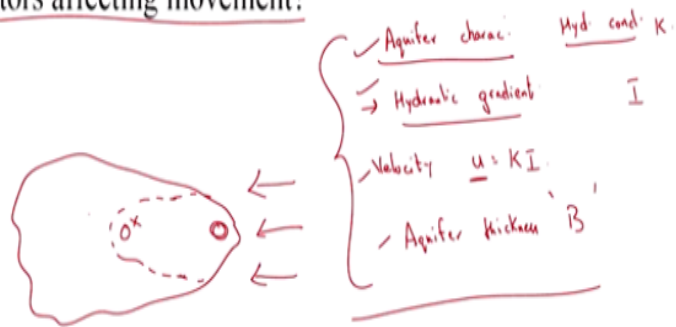 tors affecting movement?
✓ Aquifer charac. Hyd. cond. K.
→ Hydraulic gradient I
Velocity u = KI.
Aquifer thickness 'B'